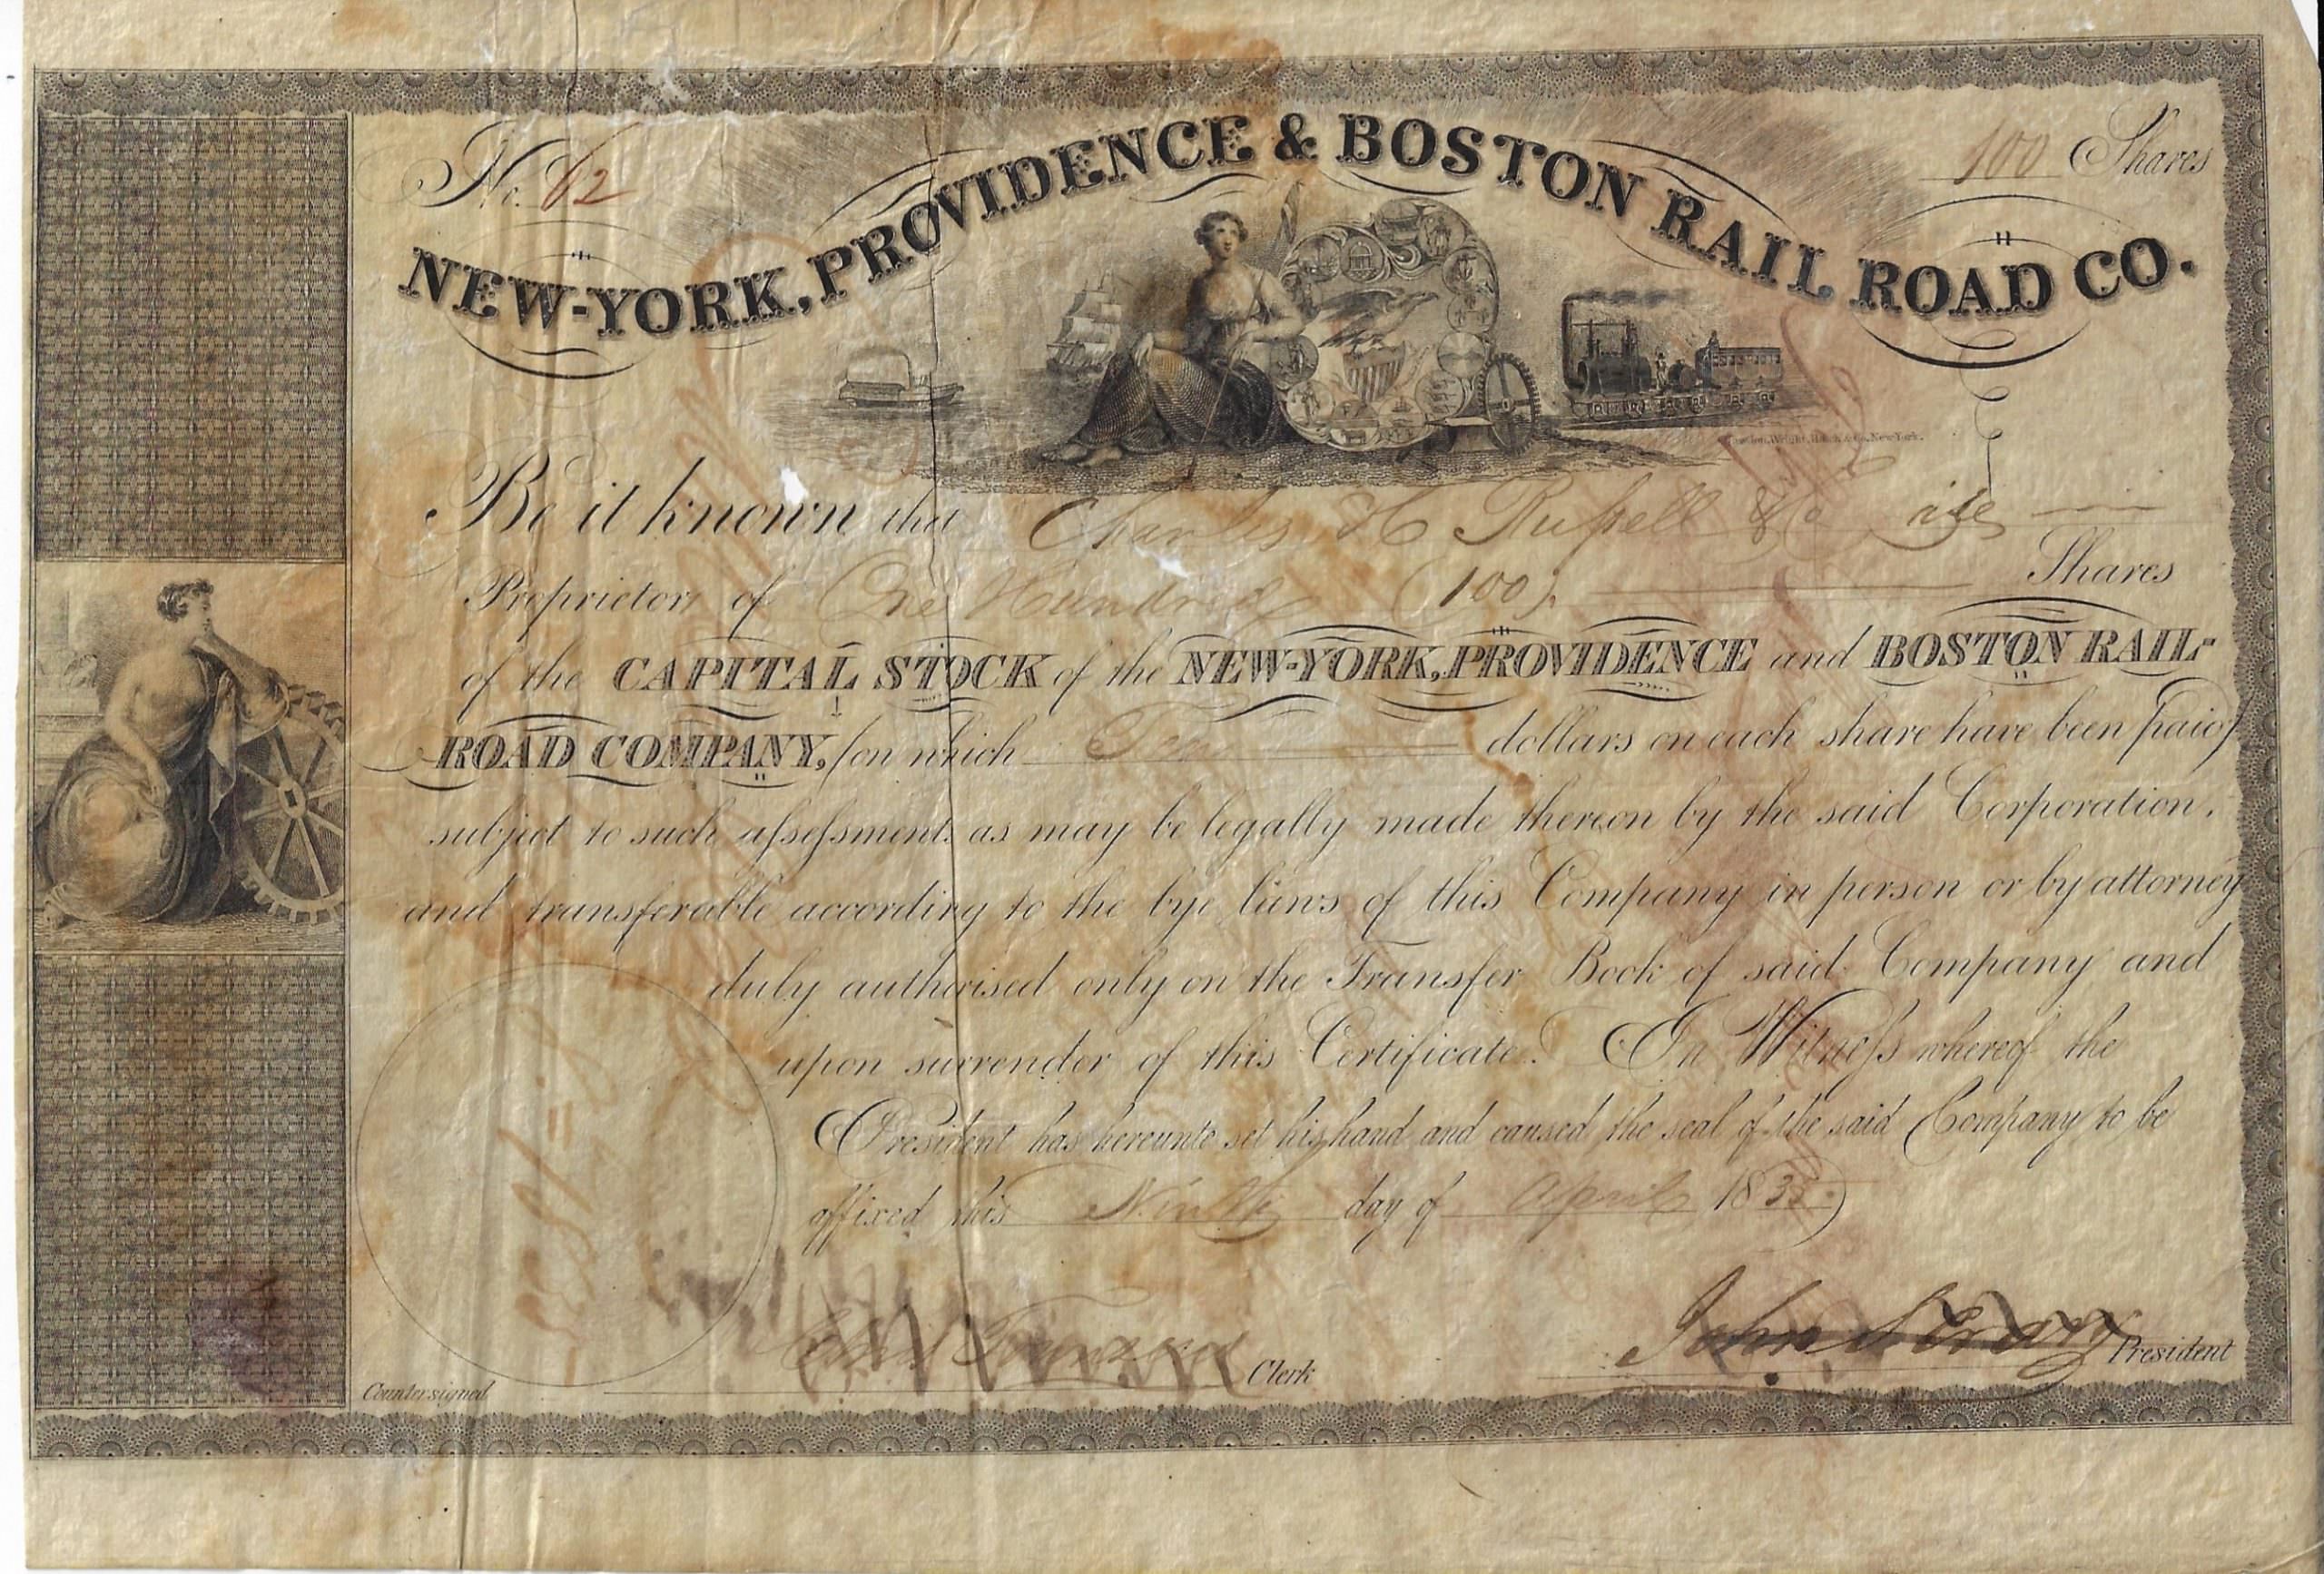 No. 62
100 Shares
NEW-YORK, PROVIDENCE & BOSTON RAIL ROAD CO.
Be it known that Charles H Russell & Co are
Proprietors of One Hundred (100) Shares
of the CAPITAL STOCK of the NEW-YORK, PROVIDENCE and BOSTON RAIL-
ROAD COMPANY, (on which Ten dollars on each share have been paid)
subject to such assessments as may be legally made thereon by the said Corporation,
and transferable according to the bye laws of this Company in person or by attorney
duly authorised only on the Transfer Book of said Company and
upon surrender of this Certificate. In Witness whereof the
President has hereunto set his hand and caused the seal of the said Company to be
affixed this Ninth day of April 183
Townsend Clerk
John S Crary President
Countersigned